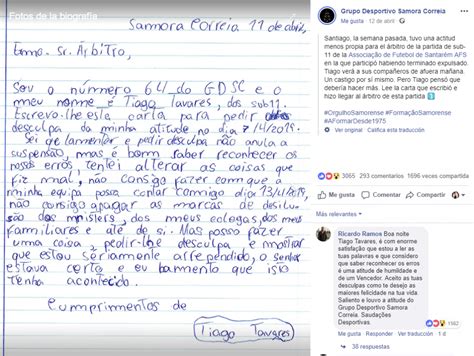 Fotos de la biografía
Samora Correia 11 de abril,
Exmo. Sr. Árbitro,
Sou o número 64 do GDSC e o
meu nome é Tiago Tavares, dos sub11.
Escrevo-lhe esta carta para pedir
desculpa da minha atitude no dia 7/4/2019.
Sei que lamentar e pedir desculpa não anula a
suspensão, mas é bom saber reconhecer os
nossos erros, tentei alterar as coisas que
fiz mal, não consigo fazer com que a
minha equipa possa contar comigo dia 13/4/2019,
não consigo apagar as marcas de desilu
são dos misters, dos meus colegas, dos meus
familiares e até de si. Mas posso fazer
uma coisa, pedir-lhe desculpa e mostrar
que estou sériamente arrependido, o senhor
estava certo e eu lamento que isto
tenha acontecido.
Cumprimentos de
Tiago Tavares
Grupo Desportivo Samora Correia
Me gusta · 12 de abril ·
Santiago, la semana pasada, tuvo una actitud
menos propia para el árbitro de la partida de sub-
11 de la Associação de Futebol de Santarém AFS
en la que participó habiendo terminado expulsado.
Tiago verá a sus compañeros de afuera mañana.
Un castigo por sí mismo. Pero Tiago pensó que
debería hacer más. Lee la carta que escribió e
hizo llegar al árbitro de esta partida
#OrgulhoSamorense #FormaçãoSamorense
#AFormarDesde1975
Ver original · Califica esta traducción
3065 293 comentarios 1696 veces compartida
Me gusta Comentar Compartir
Más relevantes
Ricardo Ramos Boa noite
Tiago Tavares, é com enorme
satisfação que estou a ler as
tuas palavras e que considero
que saber reconhecer os erros
é uma atitude de humildade e
de um Vencedor. Aceito as tuas
desculpas como te desejo as
maiores felicidade na tua vida.
Saliento e louvo a atitude do
Grupo Desportivo Samora
Correia. Saudações
Desportivas
1162
Me gusta · Responder · Ver traducción ·
38 respuestas